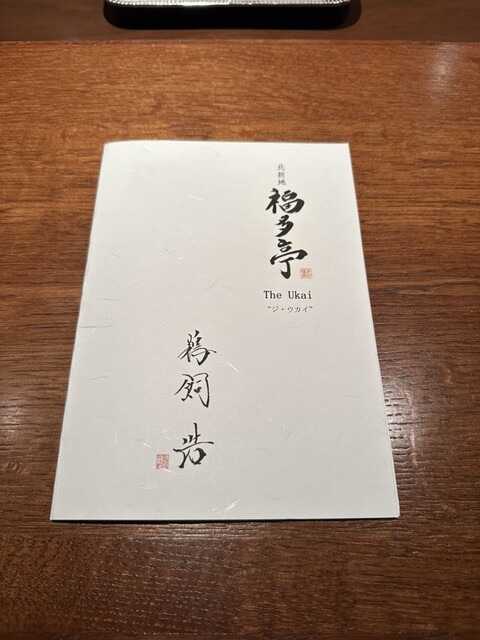 北新地
福多亭
The Ukai
"ジ・ウカイ"
鵜飼
浩